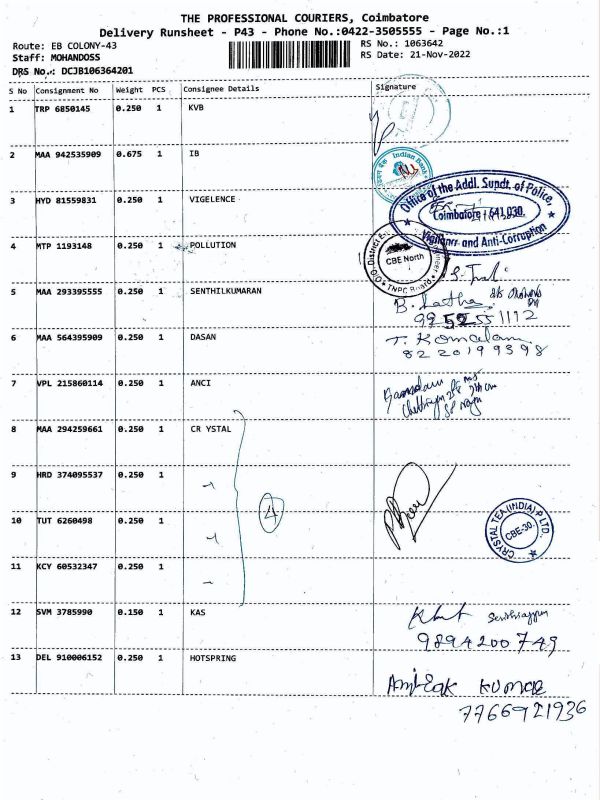 THE PROFESSIONAL COURIERS, Coimbatore
Delivery Runsheet - P43 - Phone No.:0422-3505555 - Page No.:1
Route: EB COLONY-43
Staff: MOHANDOSS
DRS No.: DCJB106364201
RS No.: 1063642
RS Date: 21-Nov-2022
S No Consignment No Weight PCS Consignee Details Signature
1 TRP 6850145 0.250 1 KVB
2 MAA 942535909 0.675 1 IB
Indian Bank
3 HYD 81559831 0.250 1 VIGELENCE
Office of the Addl. Supdt. of Police,
Coimbatore - 641 030.
Vigilance and Anti-Corruption
4 MTP 1193148 0.250 1 POLLUTION
CBE North
TNPC Board
5 MAA 293395555 0.250 1 SENTHILKUMARAN
B. Latha
9952551112
6 MAA 564395909 0.250 1 DASAN
T. Komalam
8220199398
7 VPL 215860114 0.250 1 ANCI
8 MAA 294259661 0.250 1 CR YSTAL
9 HRD 374095537 0.250 1
4
10 TUT 6260498 0.250 1
CRYSTAL TEA (INDIA) P LTD.
CBE-30.
11 KCY 60532347 0.250 1
12 SVM 3785990 0.150 1 KAS
9894200749
13 DEL 910006152 0.250 1 HOTSPRING
KUMAR
7766921936